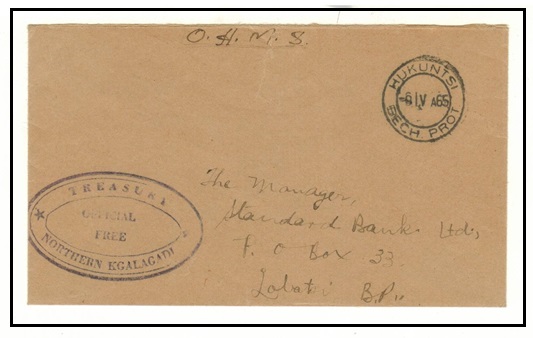 O. H. M. S.
HUKUNTSI
6 IV A65
BECH. PROT
TREASURY
OFFICIAL
FREE
NORTHERN KGALAGADI
The Manager,
Standard Bank Ltd,
P. O Box 33.
Lobatsi B.P.,